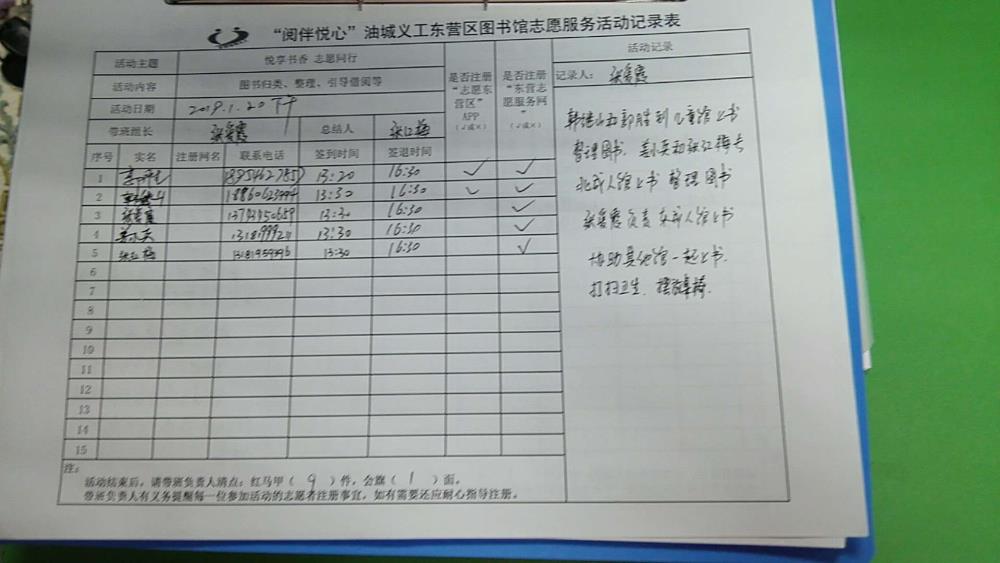 “阅伴悦心”油城义工东营区图书馆志愿服务活动记录表
活动主题 悦享书香 志愿同行
活动内容 图书归类、整理、引导借阅等
活动日期 2019.1.20下午
带班组长 张爱霞 总结人 张红梅
是否注册“志愿东营区”APP（√或×）
是否注册“东营志愿服务网”（√或×）
序号 实名 注册网名 联系电话 签到时间 签退时间
1 13:20 16:30 √ √
2 13:30 16:30 √ √
3 张爱霞 13:30 16:30 √
4 姜小英 13:30 16:30 √
5 张红梅 13:30 16:30 √
6
7
8
9
10
11
12
13
14
15
注：
活动结束后，请带班负责人清点：红马甲（ 9 ）件，会旗（ 1 ）面。
带班负责人有义务提醒每一位参加活动的志愿者注册事宜，如有需要还应耐心指导注册。
活动记录
记录人：张爱霞
韩继山和郭胜利儿童馆上书
整理图书．姜小英和张红梅去
北成人馆上书整理图书
张爱霞负责东成人馆上书
协助其他馆一起上书．
打扫卫生．摆放桌椅．